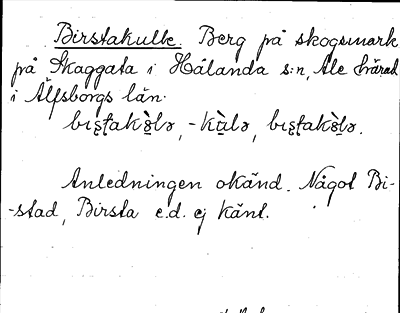 Birstakulle. Berg på skogsmark
på Skaggata i Hålanda s:n, Ale härad
i Älfsborgs län.
bɪʂʈakò̤lə, -kṳ̀lə, bɪʂʈakò̤lə.
Anledningen okänd. Något Bi-
-stad, Birsta e.d. ej känt.